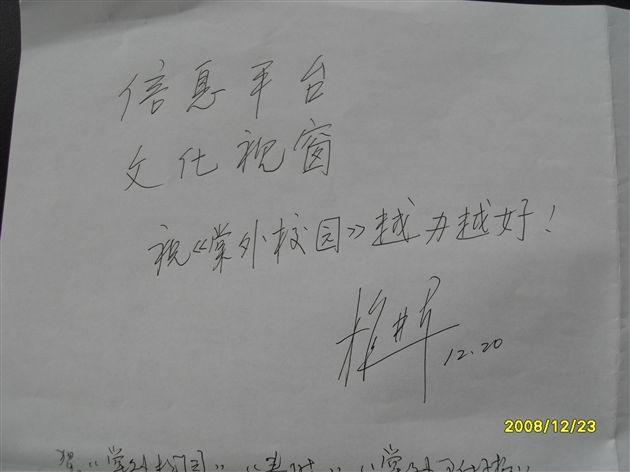 信息平台
文化视窗
祝《棠外校园》越办越好！
12.20
2008/12/23